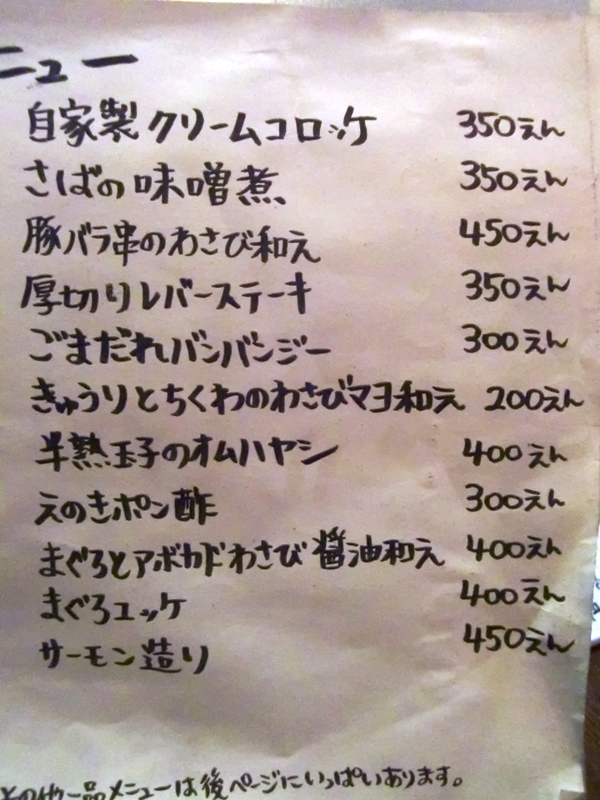 ニュー
自家製クリームコロッケ 350えん
さばの味噌煮 350えん
豚バラ串のわさび和え 450えん
厚切りレバーステーキ 350えん
ごまだれバンバンジー 300えん
きゅうりとちくわのわさびマヨ和え 200えん
半熟玉子のオムハヤシ 400えん
えのきポン酢 300えん
まぐろとアボカドわさび醤油和え 400えん
まぐろユッケ 400えん
サーモン造り 450えん
その他一品メニューは後ページにいっぱいあります。